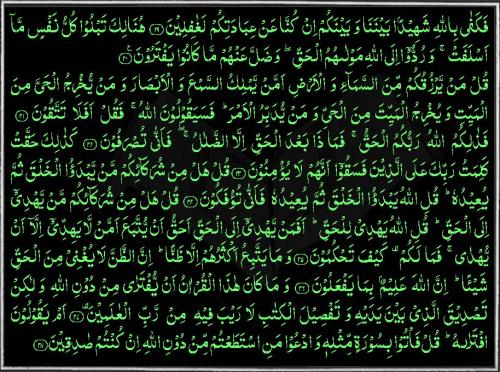 فَكَفٰى بِاللّٰهِ شَهِيْدًۢا بَيْنَنَا وَبَيْنَكُمْ اِنْ كُنَّا عَنْ عِبَادَتِكُمْ لَغٰفِلِيْنَ ﴿٢٩﴾ هُنَالِكَ تَبْلُوْا كُلُّ نَفْسٍ مَّاۤ
اَسْلَفَتْ ۚ وَرُدُّوْۤا اِلَى اللّٰهِ مَوْلٰىهُمُ الْحَقِّ ۖ وَضَلَّ عَنْهُمْ مَّا كَانُوْا يَفْتَرُوْنَ ﴿٣٠﴾
قُلْ مَنْ يَّرْزُقُكُمْ مِّنَ السَّمَآءِ وَالْاَرْضِ اَمَّنْ يَّمْلِكُ السَّمْعَ وَالْاَبْصَارَ وَمَنْ يُّخْرِجُ الْحَيَّ مِنَ
الْمَيِّتِ وَيُخْرِجُ الْمَيِّتَ مِنَ الْحَيِّ وَمَنْ يُّدَبِّرُ الْاَمْرَ ۗ فَسَيَقُوْلُوْنَ اللّٰهُ ۚ فَقُلْ اَفَلَا تَتَّقُوْنَ ﴿٣١﴾
فَذٰلِكُمُ اللّٰهُ رَبُّكُمُ الْحَقُّ ۚ فَمَا ذَا بَعْدَ الْحَقِّ اِلَّا الضَّلٰلُ ۖ فَاَنّٰى تُصْرَفُوْنَ ﴿٣٢﴾ كَذٰلِكَ حَقَّتْ
كَلِمَتُ رَبِّكَ عَلَى الَّذِيْنَ فَسَقُوْۤا اَنَّهُمْ لَا يُؤْمِنُوْنَ ﴿٣٣﴾ قُلْ هَلْ مِنْ شُرَكَآئِكُمْ مَّنْ يَّبْدَؤُا الْخَلْقَ ثُمَّ
يُعِيْدُهٗ ۗ قُلِ اللّٰهُ يَبْدَؤُا الْخَلْقَ ثُمَّ يُعِيْدُهٗ فَاَنّٰى تُؤْفَكُوْنَ ﴿٣٤﴾ قُلْ هَلْ مِنْ شُرَكَآئِكُمْ مَّنْ يَّهْدِيْۤ
اِلَى الْحَقِّ ۗ قُلِ اللّٰهُ يَهْدِيْ لِلْحَقِّ ۗ اَفَمَنْ يَّهْدِيْۤ اِلَى الْحَقِّ اَحَقُّ اَنْ يُّتَّبَعَ اَمَّنْ لَّا يَهِدِّيْۤ اِلَّاۤ اَنْ
يُّهْدٰى ۚ فَمَا لَكُمْ ۖ كَيْفَ تَحْكُمُوْنَ ﴿٣٥﴾ وَمَا يَتَّبِعُ اَكْثَرُهُمْ اِلَّا ظَنًّا ۗ اِنَّ الظَّنَّ لَا يُغْنِيْ مِنَ الْحَقِّ
شَيْئًا ۗ اِنَّ اللّٰهَ عَلِيْمٌۢ بِمَا يَفْعَلُوْنَ ﴿٣٦﴾ وَمَا كَانَ هٰذَا الْقُرْاٰنُ اَنْ يُّفْتَرٰى مِنْ دُوْنِ اللّٰهِ وَلٰكِنْ
تَصْدِيْقَ الَّذِيْ بَيْنَ يَدَيْهِ وَتَفْصِيْلَ الْكِتٰبِ لَا رَيْبَ فِيْهِ مِنْ رَّبِّ الْعٰلَمِيْنَ ﴿٣٧﴾ اَمْ يَقُوْلُوْنَ
افْتَرٰىهُ ۗ قُلْ فَاْتُوْا بِسُوْرَةٍ مِّثْلِهٖ وَادْعُوْا مَنِ اسْتَطَعْتُمْ مِّنْ دُوْنِ اللّٰهِ اِنْ كُنْتُمْ صٰدِقِيْنَ ﴿٣٨﴾